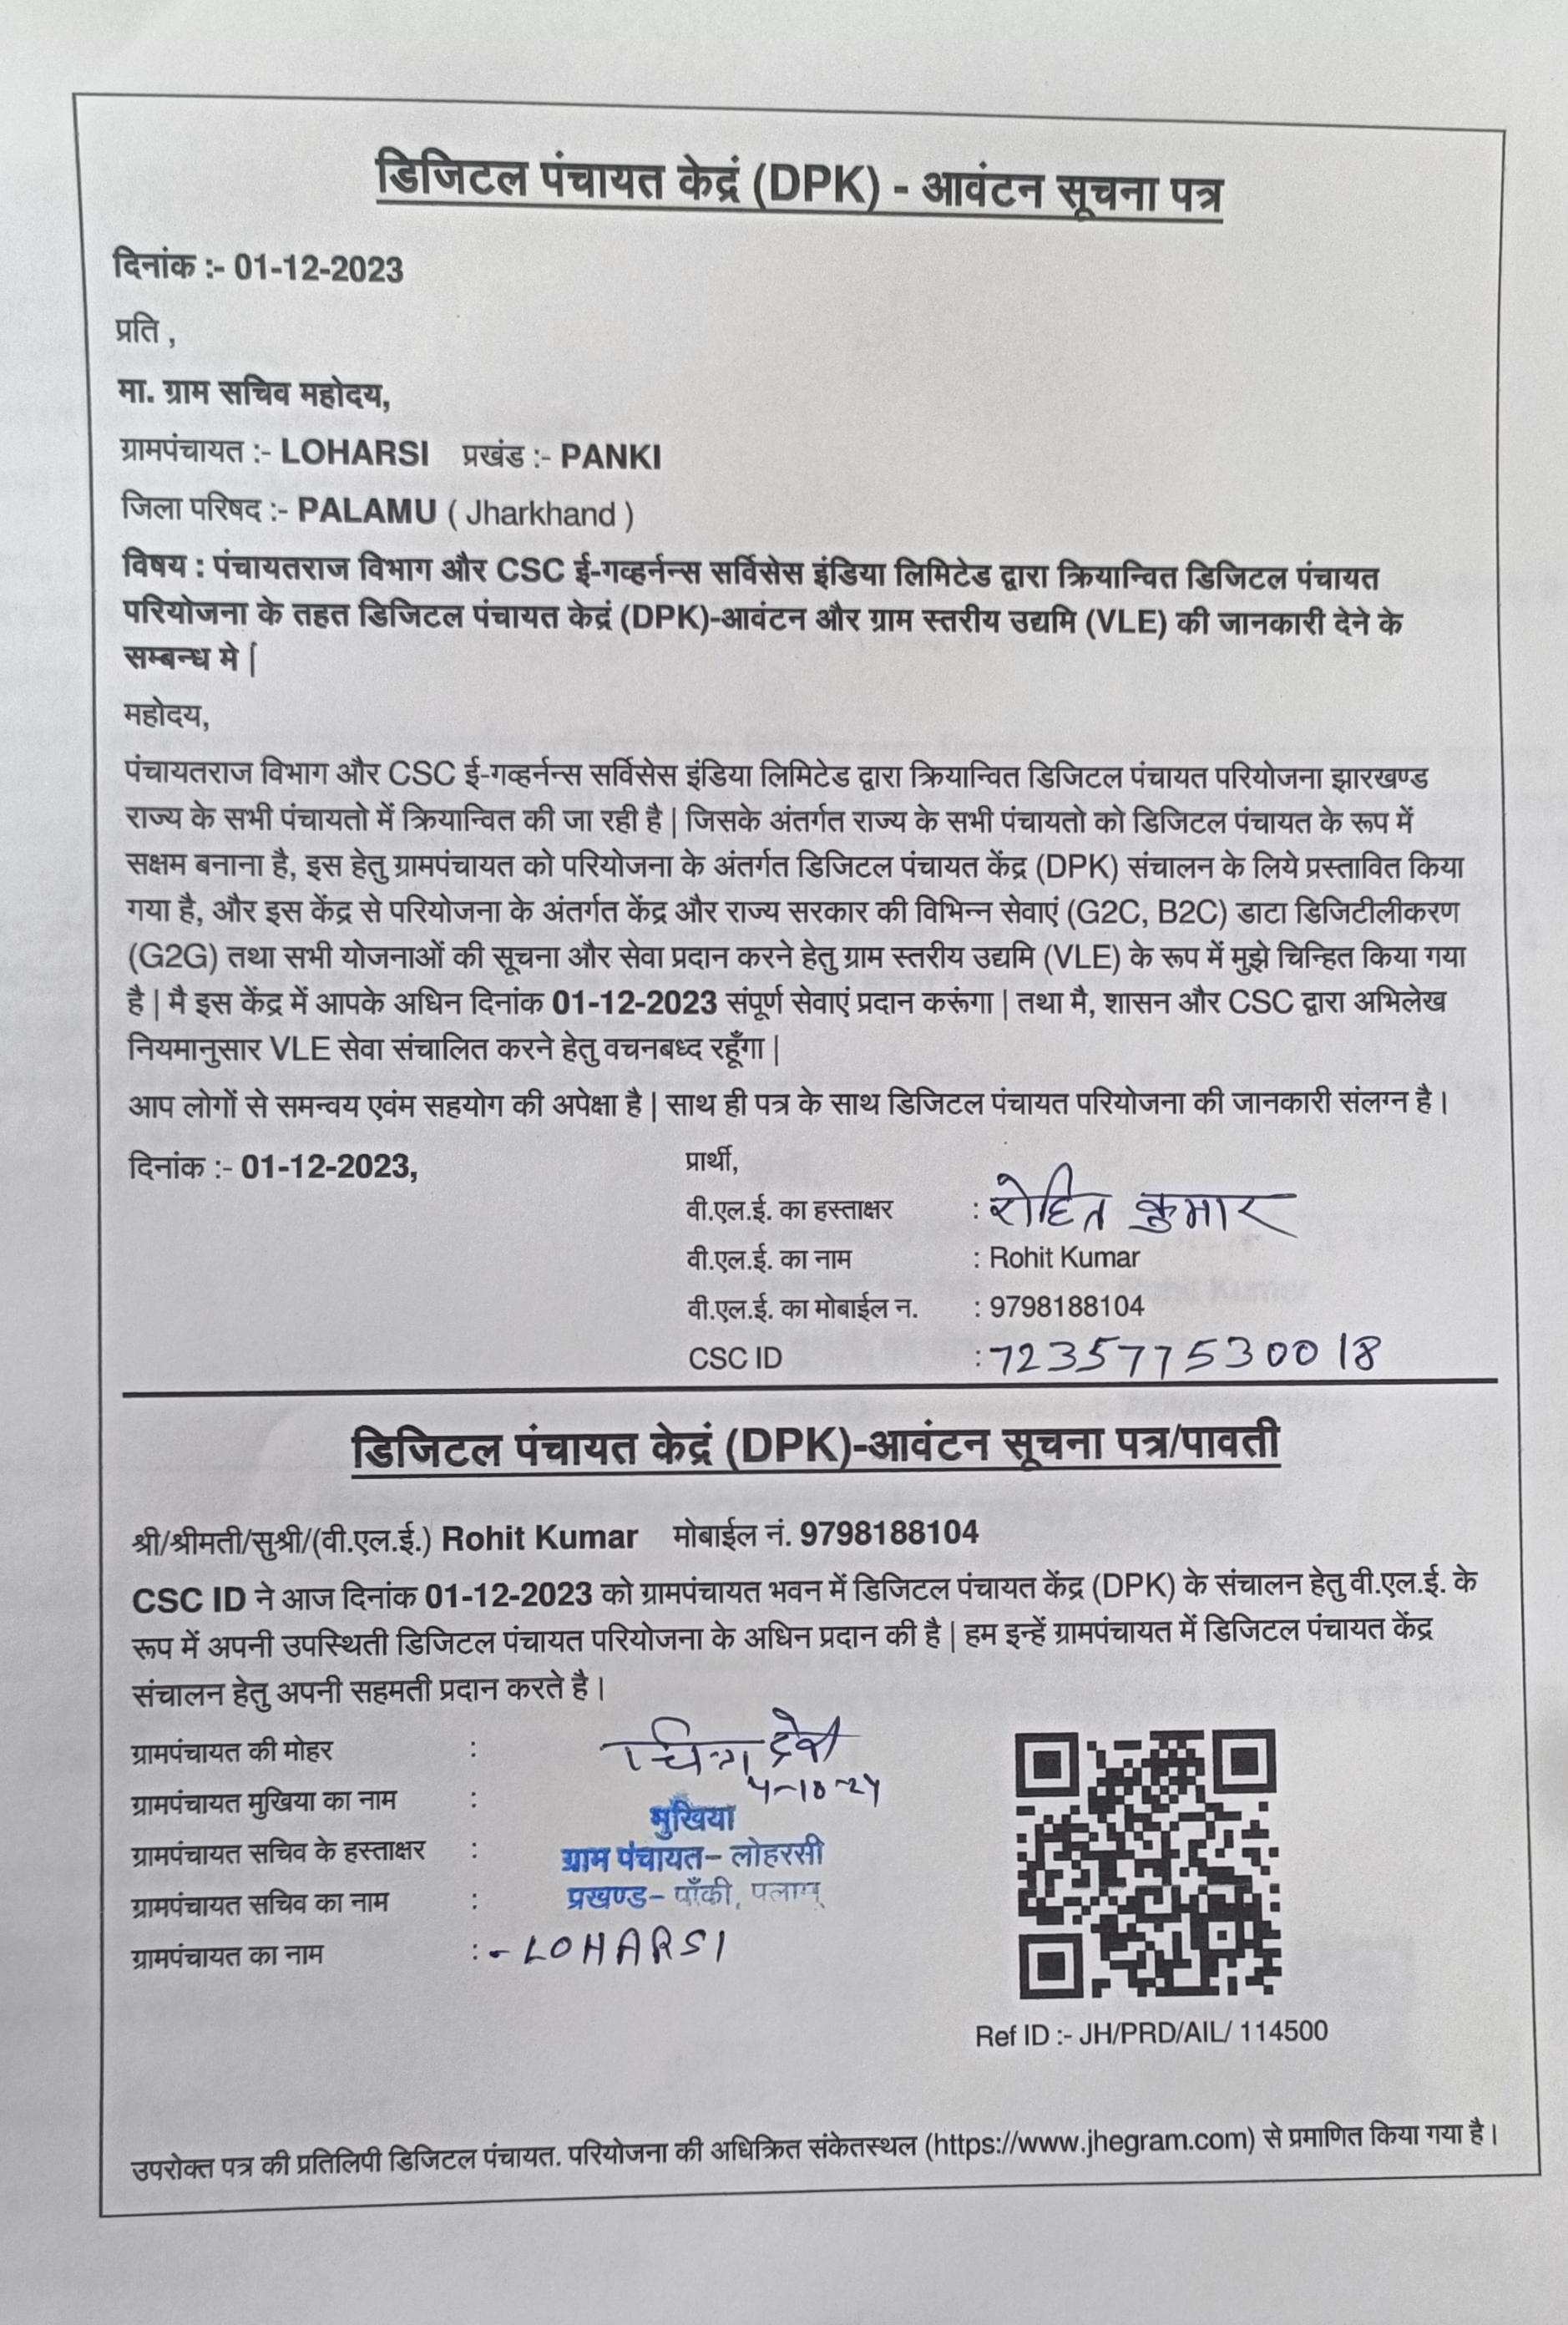 डिजिटल पंचायत केद्रं (DPK) - आवंटन सूचना पत्र
दिनांक :- 01-12-2023
प्रति ,
मा. ग्राम सचिव महोदय,
ग्रामपंचायत :- LOHARSI प्रखंड :- PANKI
जिला परिषद :- PALAMU ( Jharkhand )
विषय : पंचायतराज विभाग और CSC ई-गव्हर्नन्स सर्विसेस इंडिया लिमिटेड द्वारा क्रियान्वित डिजिटल पंचायत
परियोजना के तहत डिजिटल पंचायत केद्रं (DPK)-आवंटन और ग्राम स्तरीय उद्यमि (VLE) की जानकारी देने के
सम्बन्ध मे |
महोदय,
पंचायतराज विभाग और CSC ई-गव्हर्नन्स सर्विसेस इंडिया लिमिटेड द्वारा क्रियान्वित डिजिटल पंचायत परियोजना झारखण्ड
राज्य के सभी पंचायतो में क्रियान्वित की जा रही है | जिसके अंतर्गत राज्य के सभी पंचायतो को डिजिटल पंचायत के रूप में
सक्षम बनाना है, इस हेतु ग्रामपंचायत को परियोजना के अंतर्गत डिजिटल पंचायत केंद्र (DPK) संचालन के लिये प्रस्तावित किया
गया है, और इस केंद्र से परियोजना के अंतर्गत केंद्र और राज्य सरकार की विभिन्न सेवाएं (G2C, B2C) डाटा डिजिटीलीकरण
(G2G) तथा सभी योजनाओं की सूचना और सेवा प्रदान करने हेतु ग्राम स्तरीय उद्यमि (VLE) के रूप में मुझे चिन्हित किया गया
है | मै इस केंद्र में आपके अधिन दिनांक 01-12-2023 संपूर्ण सेवाएं प्रदान करूंगा | तथा मै, शासन और CSC द्वारा अभिलेख
नियमानुसार VLE सेवा संचालित करने हेतु वचनबध्द रहूँगा |
आप लोगों से समन्वय एवंम सहयोग की अपेक्षा है | साथ ही पत्र के साथ डिजिटल पंचायत परियोजना की जानकारी संलग्न है।
दिनांक :- 01-12-2023,
प्रार्थी,
वी.एल.ई. का हस्ताक्षर : रोहित कुमार
वी.एल.ई. का नाम : Rohit Kumar
वी.एल.ई. का मोबाईल न. : 9798188104
CSC ID : 723577530018
डिजिटल पंचायत केद्रं (DPK)-आवंटन सूचना पत्र/पावती
श्री/श्रीमती/सुश्री/(वी.एल.ई.) Rohit Kumar मोबाईल नं. 9798188104
CSC ID ने आज दिनांक 01-12-2023 को ग्रामपंचायत भवन में डिजिटल पंचायत केंद्र (DPK) के संचालन हेतु वी.एल.ई. के
रूप में अपनी उपस्थिती डिजिटल पंचायत परियोजना के अधिन प्रदान की है | हम इन्हें ग्रामपंचायत में डिजिटल पंचायत केंद्र
संचालन हेतु अपनी सहमती प्रदान करते है।
ग्रामपंचायत की मोहर :
देवी
4-10-24
ग्रामपंचायत मुखिया का नाम :
मुखिया
ग्रामपंचायत सचिव के हस्ताक्षर :
ग्राम पंचायत– लोहरसी
ग्रामपंचायत सचिव का नाम :
प्रखण्ड– पाँकी, पलामू
ग्रामपंचायत का नाम :- LOHARSI
Ref ID :- JH/PRD/AIL/ 114500
उपरोक्त पत्र की प्रतिलिपी डिजिटल पंचायत. परियोजना की अधिक्रित संकेतस्थल (https://www.jhegram.com) से प्रमाणित किया गया है।